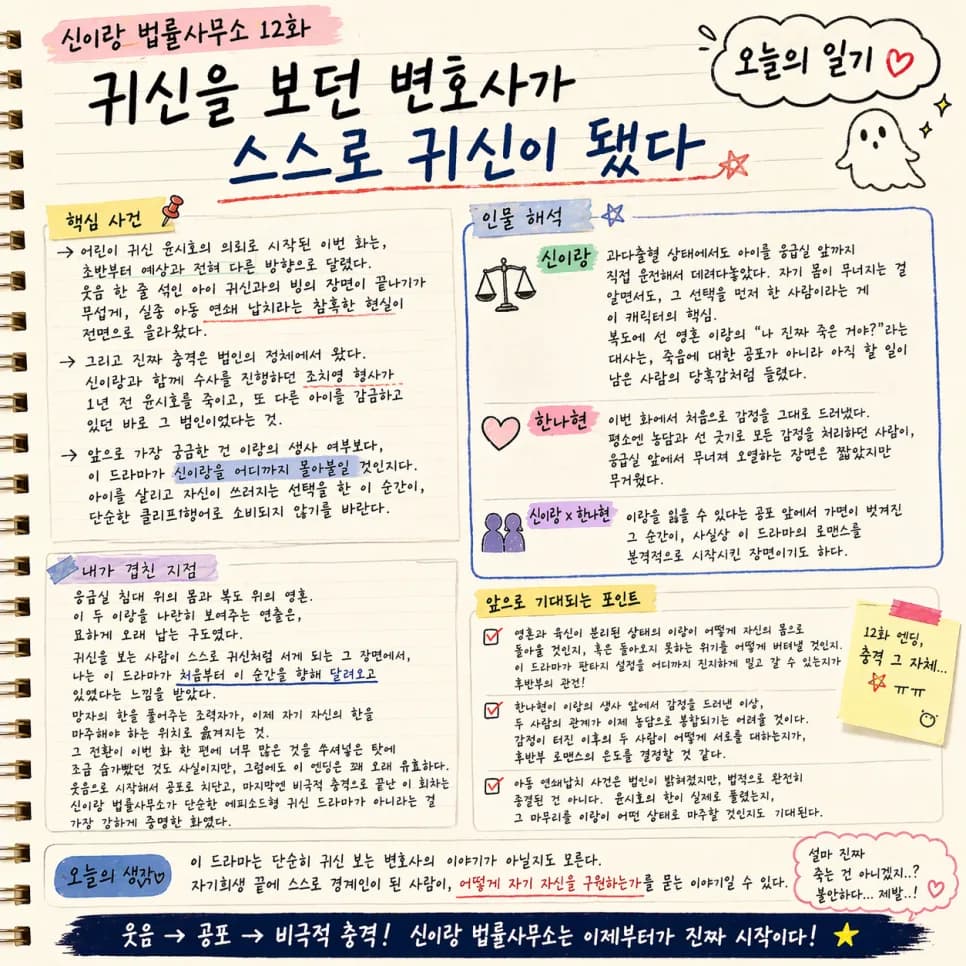 신이랑 법률사무소 12화
귀신을 보던 변호사가
스스로 귀신이 됐다
오늘의 일기
핵심 사건
→ 어린이 귀신 윤시호의 의뢰로 시작된 이번 화는,
초반부터 예상과 전혀 다른 방향으로 달렸다.
웃음 한 줄 섞인 아이 귀신과의 빙의 장면이 끝나기가
무섭게, 실종 아동 연쇄 납치라는 참혹한 현실이
전면으로 올라왔다.
→ 그리고 진짜 충격은 범인의 정체에서 왔다.
신이랑과 함께 수사를 진행하던 조치영 형사가
1년 전 윤시호를 죽이고, 또 다른 아이를 감금하고
있던 바로 그 범인이었다는 것.
→ 앞으로 가장 궁금한 건 이랑의 생사 여부보다,
이 드라마가 신이랑을 어디까지 몰아붙일 것인지다.
아이를 살리고 자신이 쓰러지는 선택을 한 이 순간이,
단순한 클리프행어로 소비되지 않기를 바란다.
인물 해석
신이랑
과다출혈 상태에서도 아이를 응급실 앞까지
직접 운전해서 데려다놓았다. 자기 몸이 무너지는 걸
알면서도, 그 선택을 먼저 한 사람이라는 게
이 캐릭터의 핵심.
복도에 선 영혼 이랑의 “나 진짜 죽은 거야?”라는
대사는, 죽음에 대한 공포가 아니라 아직 할 일이
남은 사람의 당혹감처럼 들렸다.
한나현
이번 화에서 처음으로 감정을 그대로 드러냈다.
평소엔 농담과 선 긋기로 모든 감정을 처리하던 사람이,
응급실 앞에서 무너져 오열하는 장면은 짧았지만
무거웠다.
신이랑 x 한나현
이랑을 잃을 수 있다는 공포 앞에서 가면이 벗겨진
그 순간이, 사실상 이 드라마의 로맨스를
본격적으로 시작시킨 장면이기도 하다.
내가 겹친 지점
응급실 침대 위의 몸과 복도 위의 영혼.
이 두 이랑을 나란히 보여주는 연출은,
묘하게 오래 남는 구도였다.
귀신을 보는 사람이 스스로 귀신처럼 서게 되는 그 장면에서,
나는 이 드라마가 처음부터 이 순간을 향해 달려오고
있었다는 느낌을 받았다.
망자의 한을 풀어주는 조력자가, 이제 자기 자신의 한을
마주해야 하는 위치로 옮겨지는 것.
그 전환이 이번 화 한 편에 너무 많은 것을 쑤셔넣은 탓에
조금 숨가빴던 것도 사실이지만, 그럼에도 이 엔딩은 꽤 오래 유효하다.
웃음으로 시작해서 공포로 치닫고, 마지막엔 비극적 충격으로 끝난 이 회차는
신이랑 법률사무소가 단순한 에피소드형 귀신 드라마가 아니라는 걸
가장 강하게 증명한 화였다.
앞으로 기대되는 포인트
영혼과 육신이 분리된 상태의 이랑이 어떻게 자신의 몸으로
돌아올 것인지, 혹은 돌아오지 못하는 위기를 어떻게 버텨낼 것인지.
이 드라마가 판타지 설정을 어디까지 진지하게 밀고 갈 수 있는지가
후반부의 관건!
한나현이 이랑의 생사 앞에서 감정을 드러낸 이상,
두 사람의 관계가 이제 농담으로 봉합되기는 어려울 것이다.
감정이 터진 이후의 두 사람이 어떻게 서로를 대하는지가,
후반부 로맨스의 온도를 결정할 것 같다.
아동 연쇄납치 사건은 범인이 밝혀졌지만, 법적으로 완전히
종결된 건 아니다. 윤시호의 한이 실제로 풀렸는지,
그 마무리를 이랑이 어떤 상태로 마주할 것인지도 기대된다.
12화 엔딩,
충격 그 자체...
ㅠㅠ
오늘의 생각
이 드라마는 단순히 귀신 보는 변호사의 이야기가 아닐지도 모른다.
자기희생 끝에 스스로 경계인이 된 사람이, 어떻게 자기 자신을 구원하는가를 묻는 이야기일 수 있다.
설마 진짜
죽는 건 아니겠지..?
불안하다... 제발..!
웃음 → 공포 → 비극적 충격! 신이랑 법률사무소는 이제부터가 진짜 시작이다!